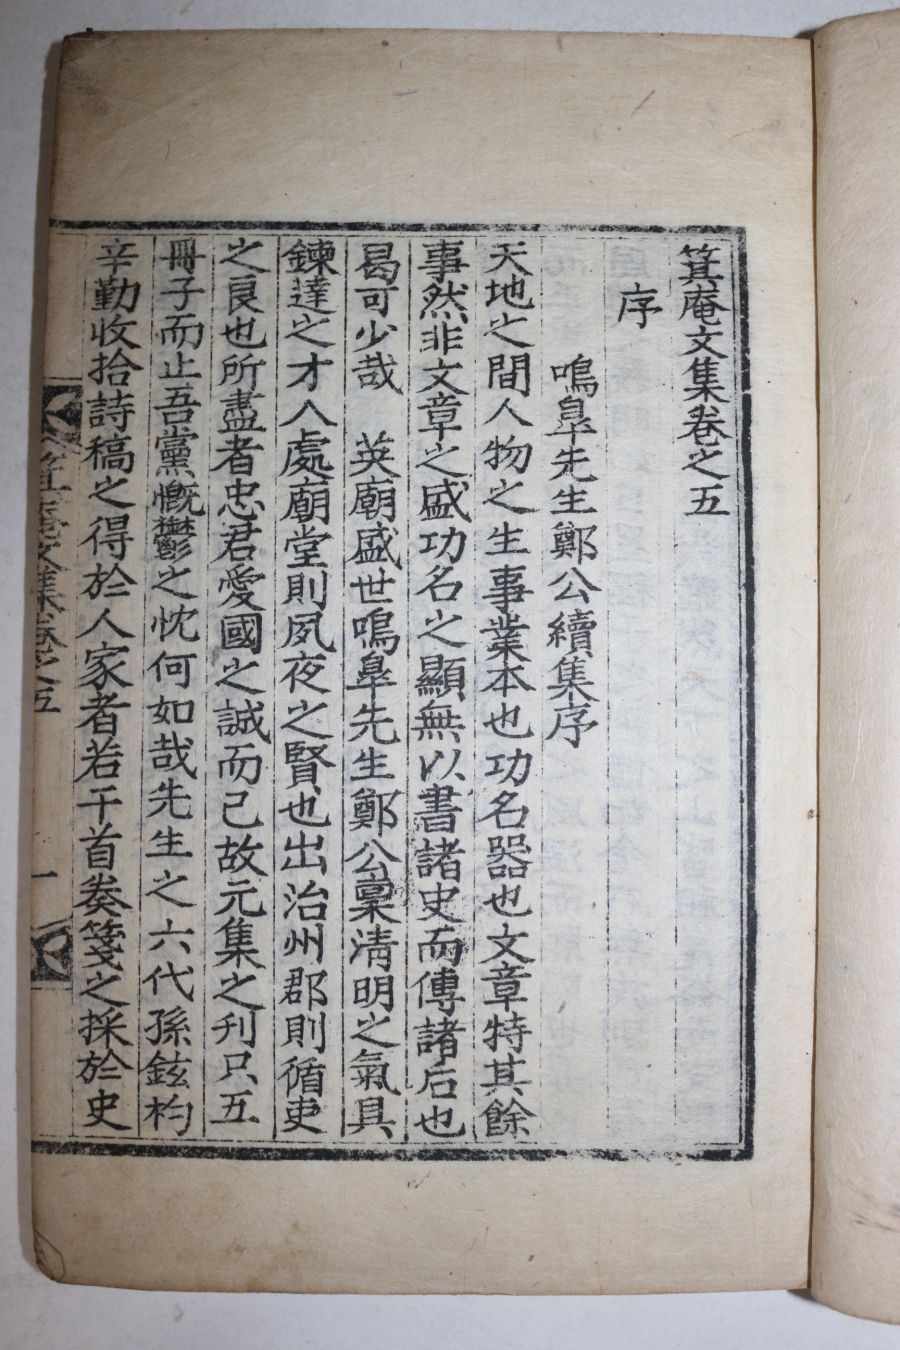 箕庵文集卷之五
序
鳴皐先生鄭公續集序
天地之間人物之生事業本也功名器也文章特其餘
事然非文章之盛功名之顯無以書諸史而傳諸后也
曷可少哉 英廟盛世鳴皐先生鄭公稟淸明之氣具
鍊達之才入處廟堂則夙夜之賢也出治州郡則循吏
之良也所盡者忠君愛國之誠而已故元集之刋只五
冊子而止吾黨慨鬱之忱何如哉先生之六代孫鉉杓
辛勤收拾詩稿之得於人家者若干首奏箋之採於史
箕庵文集卷之五
一